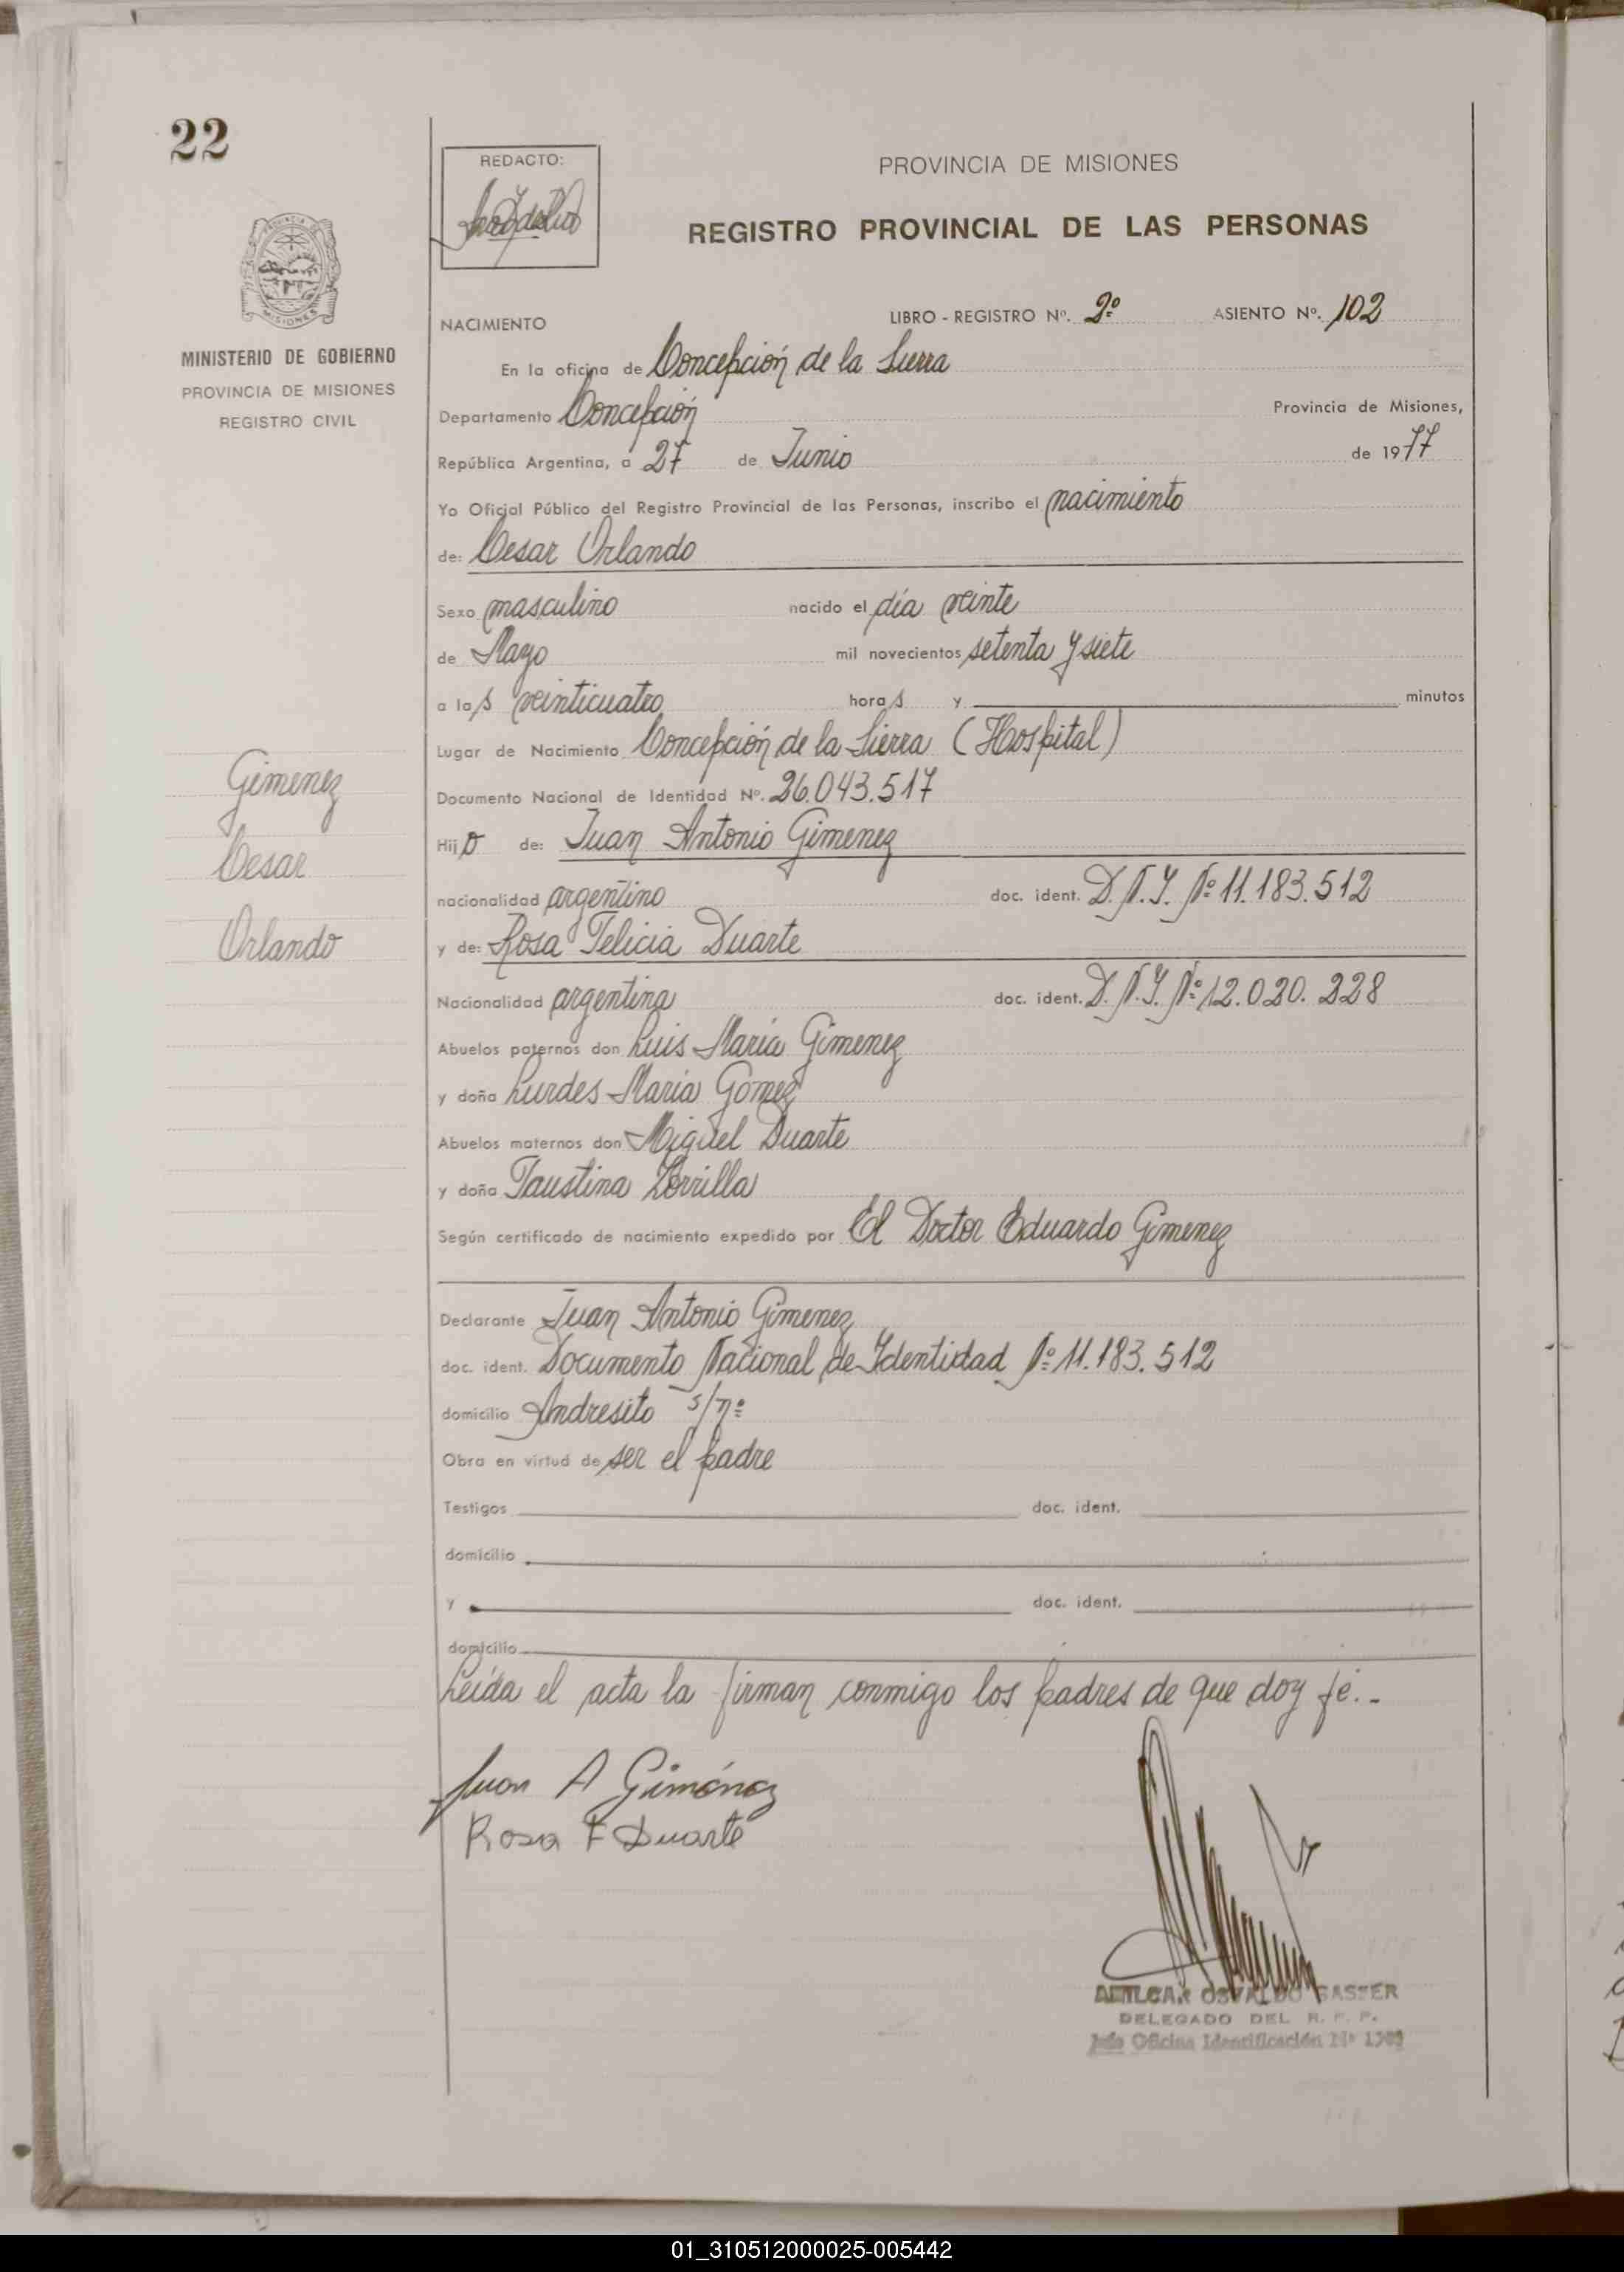 22
REDACTO:
PROVINCIA DE MISIONES
REGISTRO PROVINCIAL DE LAS PERSONAS
PROVINCIA DE
MISIONES
MINISTERIO DE GOBIERNO
PROVINCIA DE MISIONES
REGISTRO CIVIL
NACIMIENTO LIBRO - REGISTRO Nº. 2º ASIENTO Nº. 102
En la oficina de Concepción de la Sierra
Departamento Concepción Provincia de Misiones,
República Argentina, a 27 de Junio de 1977
Yo Oficial Público del Registro Provincial de las Personas, inscribo el nacimiento
de: Cesar Orlando
Sexo masculino nacido el día veinte
de Mayo mil novecientos setenta y siete
a las veinticuatro horas y minutos
Lugar de Nacimiento Concepción de la Sierra (Hospital)
Documento Nacional de Identidad Nº. 26.043.517
Hijo de: Juan Antonio Gimenez
nacionalidad argentino doc. ident. D.N.I. Nº 11.183.512
y de: Rosa Felicia Duarte
Nacionalidad argentina doc. ident. D.N.I. Nº 12.020.228
Abuelos paternos don Luis María Gimenez
y doña Lurdes María Gomez
Abuelos maternos don Miguel Duarte
y doña Faustina Zorrilla
Según certificado de nacimiento expedido por El Doctor Eduardo Gimenez
Gimenez
Cesar
Orlando
Declarante Juan Antonio Gimenez
doc. ident. Documento Nacional de Identidad Nº 11.183.512
domicilio Andresito s/nº
Obra en virtud de ser el padre
Testigos doc. ident.
domicilio
y doc. ident.
domicilio
Leída el acta la firman conmigo los padres de que doy fé.-
Juan A Giménez
Rosa F Duarte
AMILCAR OSVALDO GASSER
DELEGADO DEL R. P. P.
Jefe Oficina Identificación Nº
01_310512000025-005442